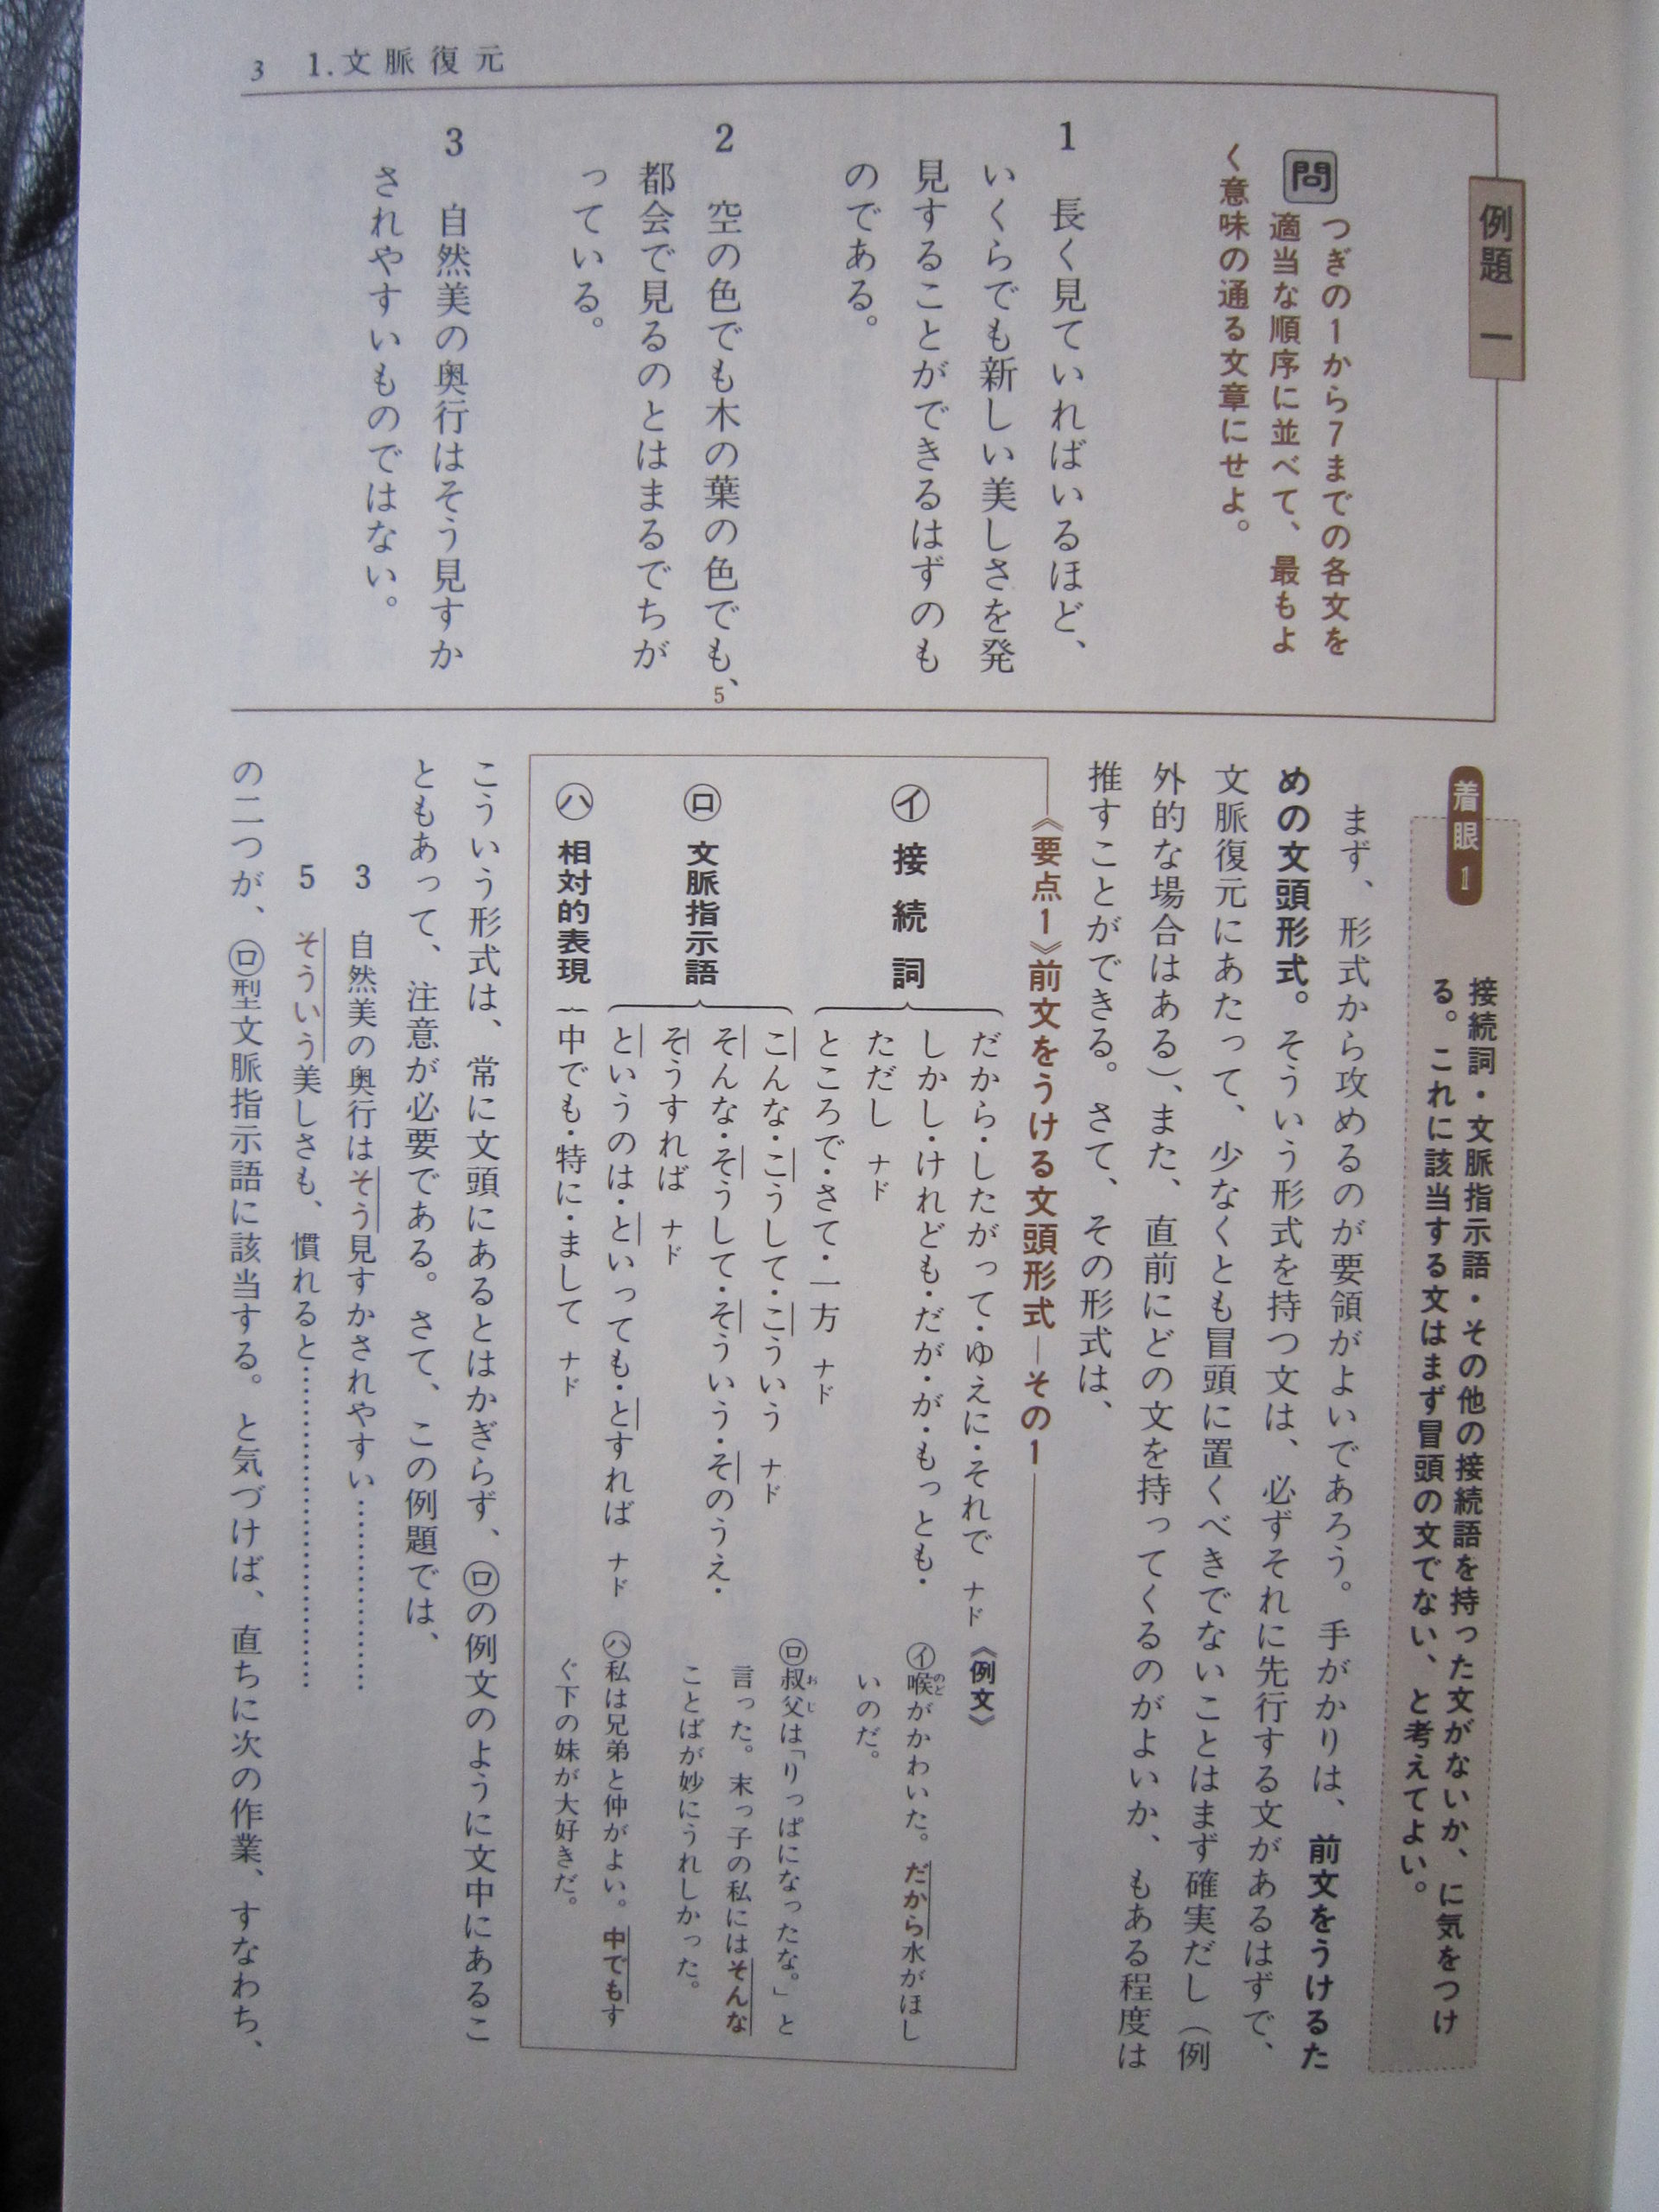 3　1. 文脈復元
例題 一
問　つぎの1から7までの各文を
適当な順序に並べて、最もよ
く意味の通る文章にせよ。
1　長く見ていればいるほど、
いくらでも新しい美しさを発
見することができるはずのも
のである。
2　空の色でも木の葉の色でも、
5
都会で見るのとはまるでちが
っている。
3　自然美の奥行はそう見すか
されやすいものではない。
着眼1
接続詞・文脈指示語・その他の接続語を持った文がないか、に気をつけ
る。これに該当する文はまず冒頭の文でない、と考えてよい。
まず、形式から攻めるのが要領がよいであろう。手がかりは、前文をうけるた
めの文頭形式。そういう形式を持つ文は、必ずそれに先行する文があるはずで、
文脈復元にあたって、少なくとも冒頭に置くべきでないことはまず確実だし（例
外的な場合はある）、また、直前にどの文を持ってくるのがよいか、もある程度は
推すことができる。さて、その形式は、
《要点1》前文をうける文頭形式―その1
㋑ 接続詞
だから・したがって・ゆえに・それで ナド
しかし・けれども・だが・が・もっとも・
ただし ナド
ところで・さて・一方 ナド
㋺ 文脈指示語
こんな・こうして・こういう ナド
そんな・そうして・そういう・そのうえ・
そうすれば ナド
というのは・といっても・とすれば ナド
㋩ 相対的表現
中でも・特に・まして ナド
《例文》
㋑喉のどがかわいた。だから水がほし
いのだ。
㋺叔父おじは「りっぱになったな。」と
言った。末っ子の私にはそんな
ことばが妙にうれしかった。
㋩私は兄弟と仲がよい。中でもす
ぐ下の妹が大好きだ。
こういう形式は、常に文頭にあるとはかぎらず、㋺の例文のように文中にあるこ
ともあって、注意が必要である。さて、この例題では、
3　自然美の奥行はそう見すかされやすい………………
5　そういう美しさも、慣れると………………………
の二つが、㋺型文脈指示語に該当する。と気づけば、直ちに次の作業、すなわち、